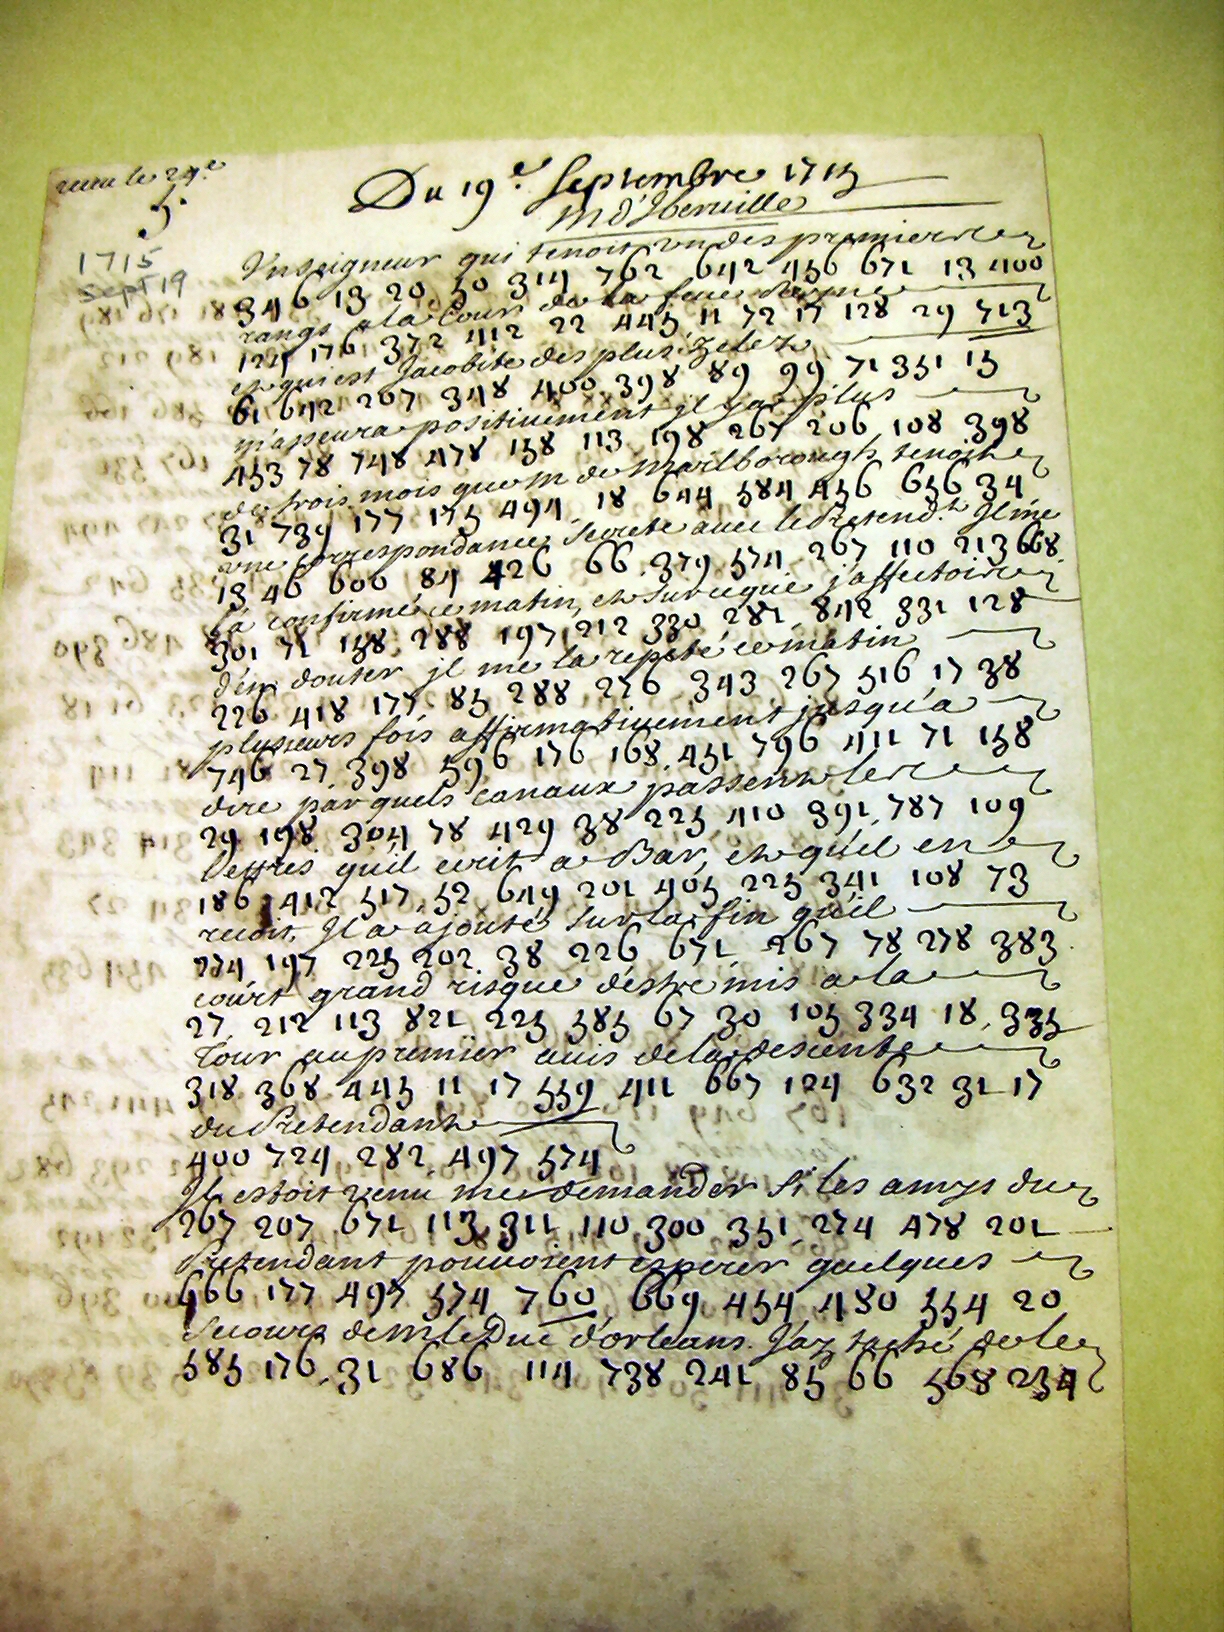 receu le 29.e
Du 19.e Septembre 1715
M d'Iberuille
1715
Sept 19
Vn seigneur qui tenoit vn des premiers
346 13 20 50 314 762 642 456 671 13 400
rangs a la Cour de la feue Reyne
124 176 372 412 22 445 11 72 17 128 29 713
et qui est Jacobite des plus zelez
61 642 207 348 400 398 89 99 71 351 15
m'asseura positiuement jl y a plus
453 78 748 478 158 113 198 267 206 108 398
de trois mois que M de Marlborough tenoit
31 739 177 175 494 18 644 584 456 656 34
vne correspondance secrete auec le Pretend.t Il me
13 46 606 84 426 66 379 574 267 110 213 668
l'a confirmé ce matin, et sur ce que j'affectois
301 71 158 288 197 212 330 281 842 331 128
d'en douter jl me l'a repeté ce matin
226 418 177 85 288 276 343 267 516 17 38
plusieurs fois affirmatiuement jusqu'a
746 27 398 596 176 168 451 796 411 71 158
dire par quels canaux passent les
29 198 304 78 429 38 225 410 391 787 109
lettres qu'il ecrit a Bar, et qu'il en
186 412 517 52 649 201 405 225 341 108 73
recoit, Il a ajouté sur la fin qu'il
224 197 225 202 38 226 671 267 78 278 383
court grand risque d'estre mis a la
27 212 113 821 225 585 67 30 105 334 18 335
Tour au premier auis de la descente
318 368 445 11 17 559 411 667 124 632 31 17
du Pretendant
400 724 282 497 574
Il estoit venu me demander si les amys du
267 207 671 113 311 110 300 351 274 478 201
Pretendant pouuoient esperer quelques
666 177 497 574 760 669 454 480 554 20
secours de M le Duc d'orleans. J'ay taché de le
585 176 31 686 114 738 241 85 66 568 234